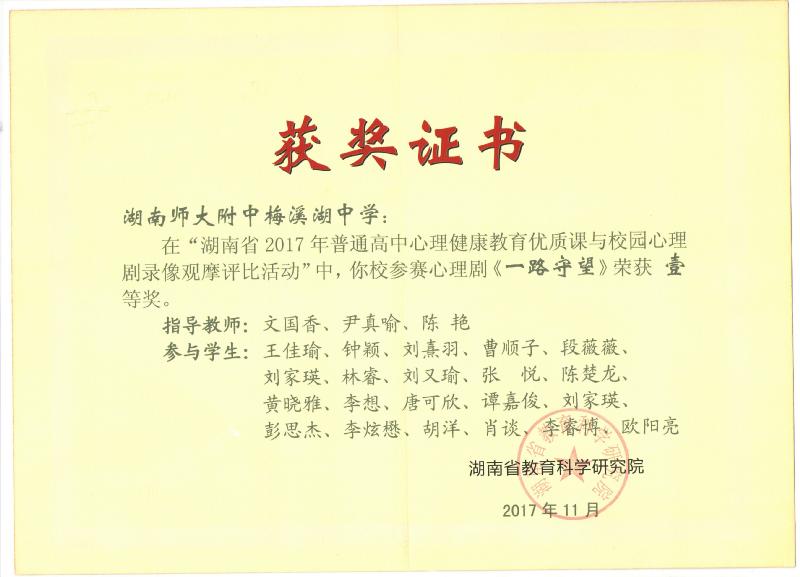 获奖证书
湖南师大附中梅溪湖中学：
在“湖南省2017年普通高中心理健康教育优质课与校园心理
剧录像观摩评比活动”中，你校参赛心理剧《一路守望》荣获 壹
等奖。
指导教师：文国香、尹真喻、陈 艳
参与学生：王佳瑜、钟颖、刘熹羽、曹顺子、段薇薇、
刘家瑛、林睿、刘又瑜、张 悦、陈楚龙、
黄晓雅、李想、唐可欣、谭嘉俊、刘家瑛、
彭思杰、李炫懋、胡洋、肖谈、李睿博、欧阳亮
湖南省教育科学研究院
湖南省教育科学研究院
2017年11月